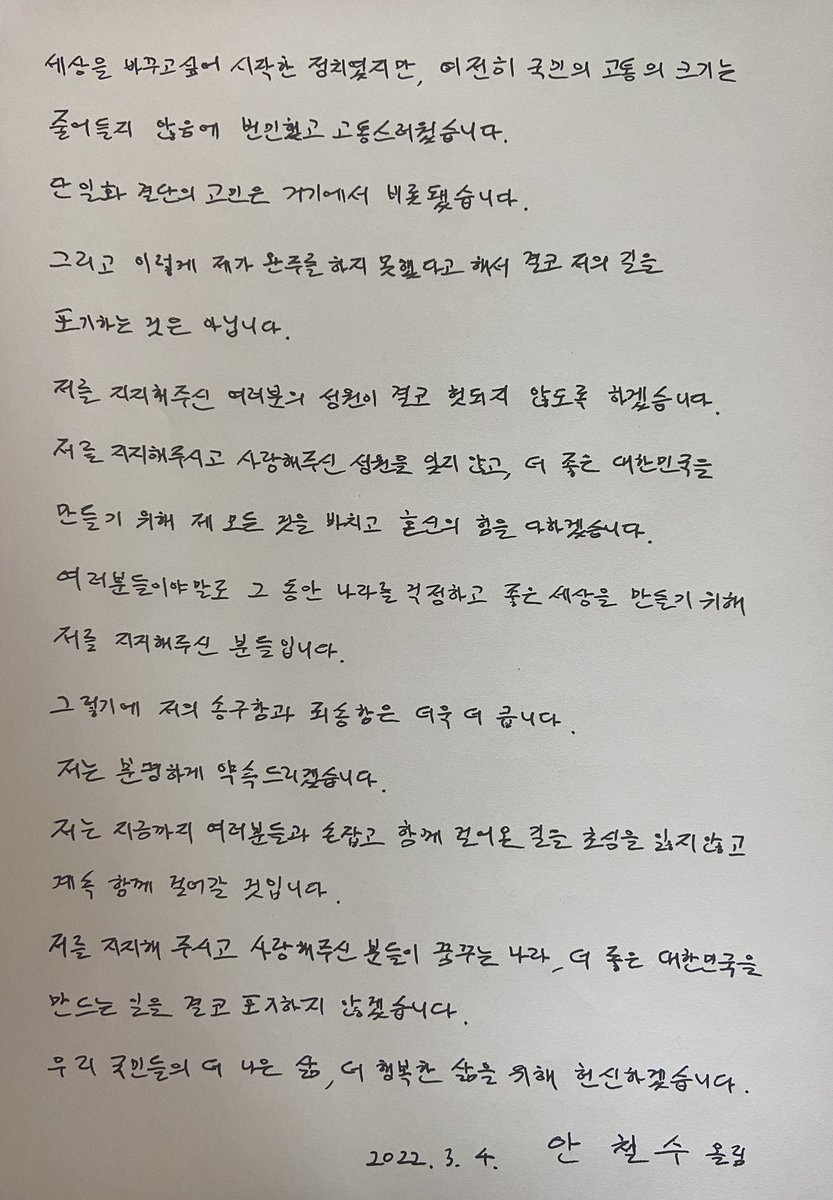 세상을 바꾸고싶어 시작한 정치였지만, 여전히 국민의 고통의 크기는
줄어들지 않음에 번민했고 고통스러웠습니다.
단일화 결단의 고민은 거기에서 비롯됐습니다.
그리고 이렇게 제가 완주를 하지 못했다고 해서 결코 저의 길을
포기하는 것은 아닙니다.
저를 지지해주신 여러분의 성원이 결코 헛되지 않도록 하겠습니다.
저를 지지해주시고 사랑해주신 성원을 잊지 않고, 더 좋은 대한민국을
만들기 위해 제 모든 것을 바치고 혼신의 힘을 다하겠습니다.
여러분들이야말로 그 동안 나라를 걱정하고 좋은 세상을 만들기 위해
저를 지지해주신 분들입니다.
그렇기에 저의 송구함과 죄송함은 더욱 더 큽니다.
저는 분명하게 약속드리겠습니다.
저는 지금까지 여러분들과 손잡고 함께 걸어온 길을 초심을 잃지않고
계속 함께 걸어갈 것입니다.
저를 지지해 주시고 사랑해주신 분들이 꿈꾸는 나라, 더 좋은 대한민국을
만드는 일을 결코 포기하지 않겠습니다.
우리 국민들의 더 나은 삶, 더 행복한 삶을 위해 헌신하겠습니다.
2022. 3. 4. 안 철 수 올림